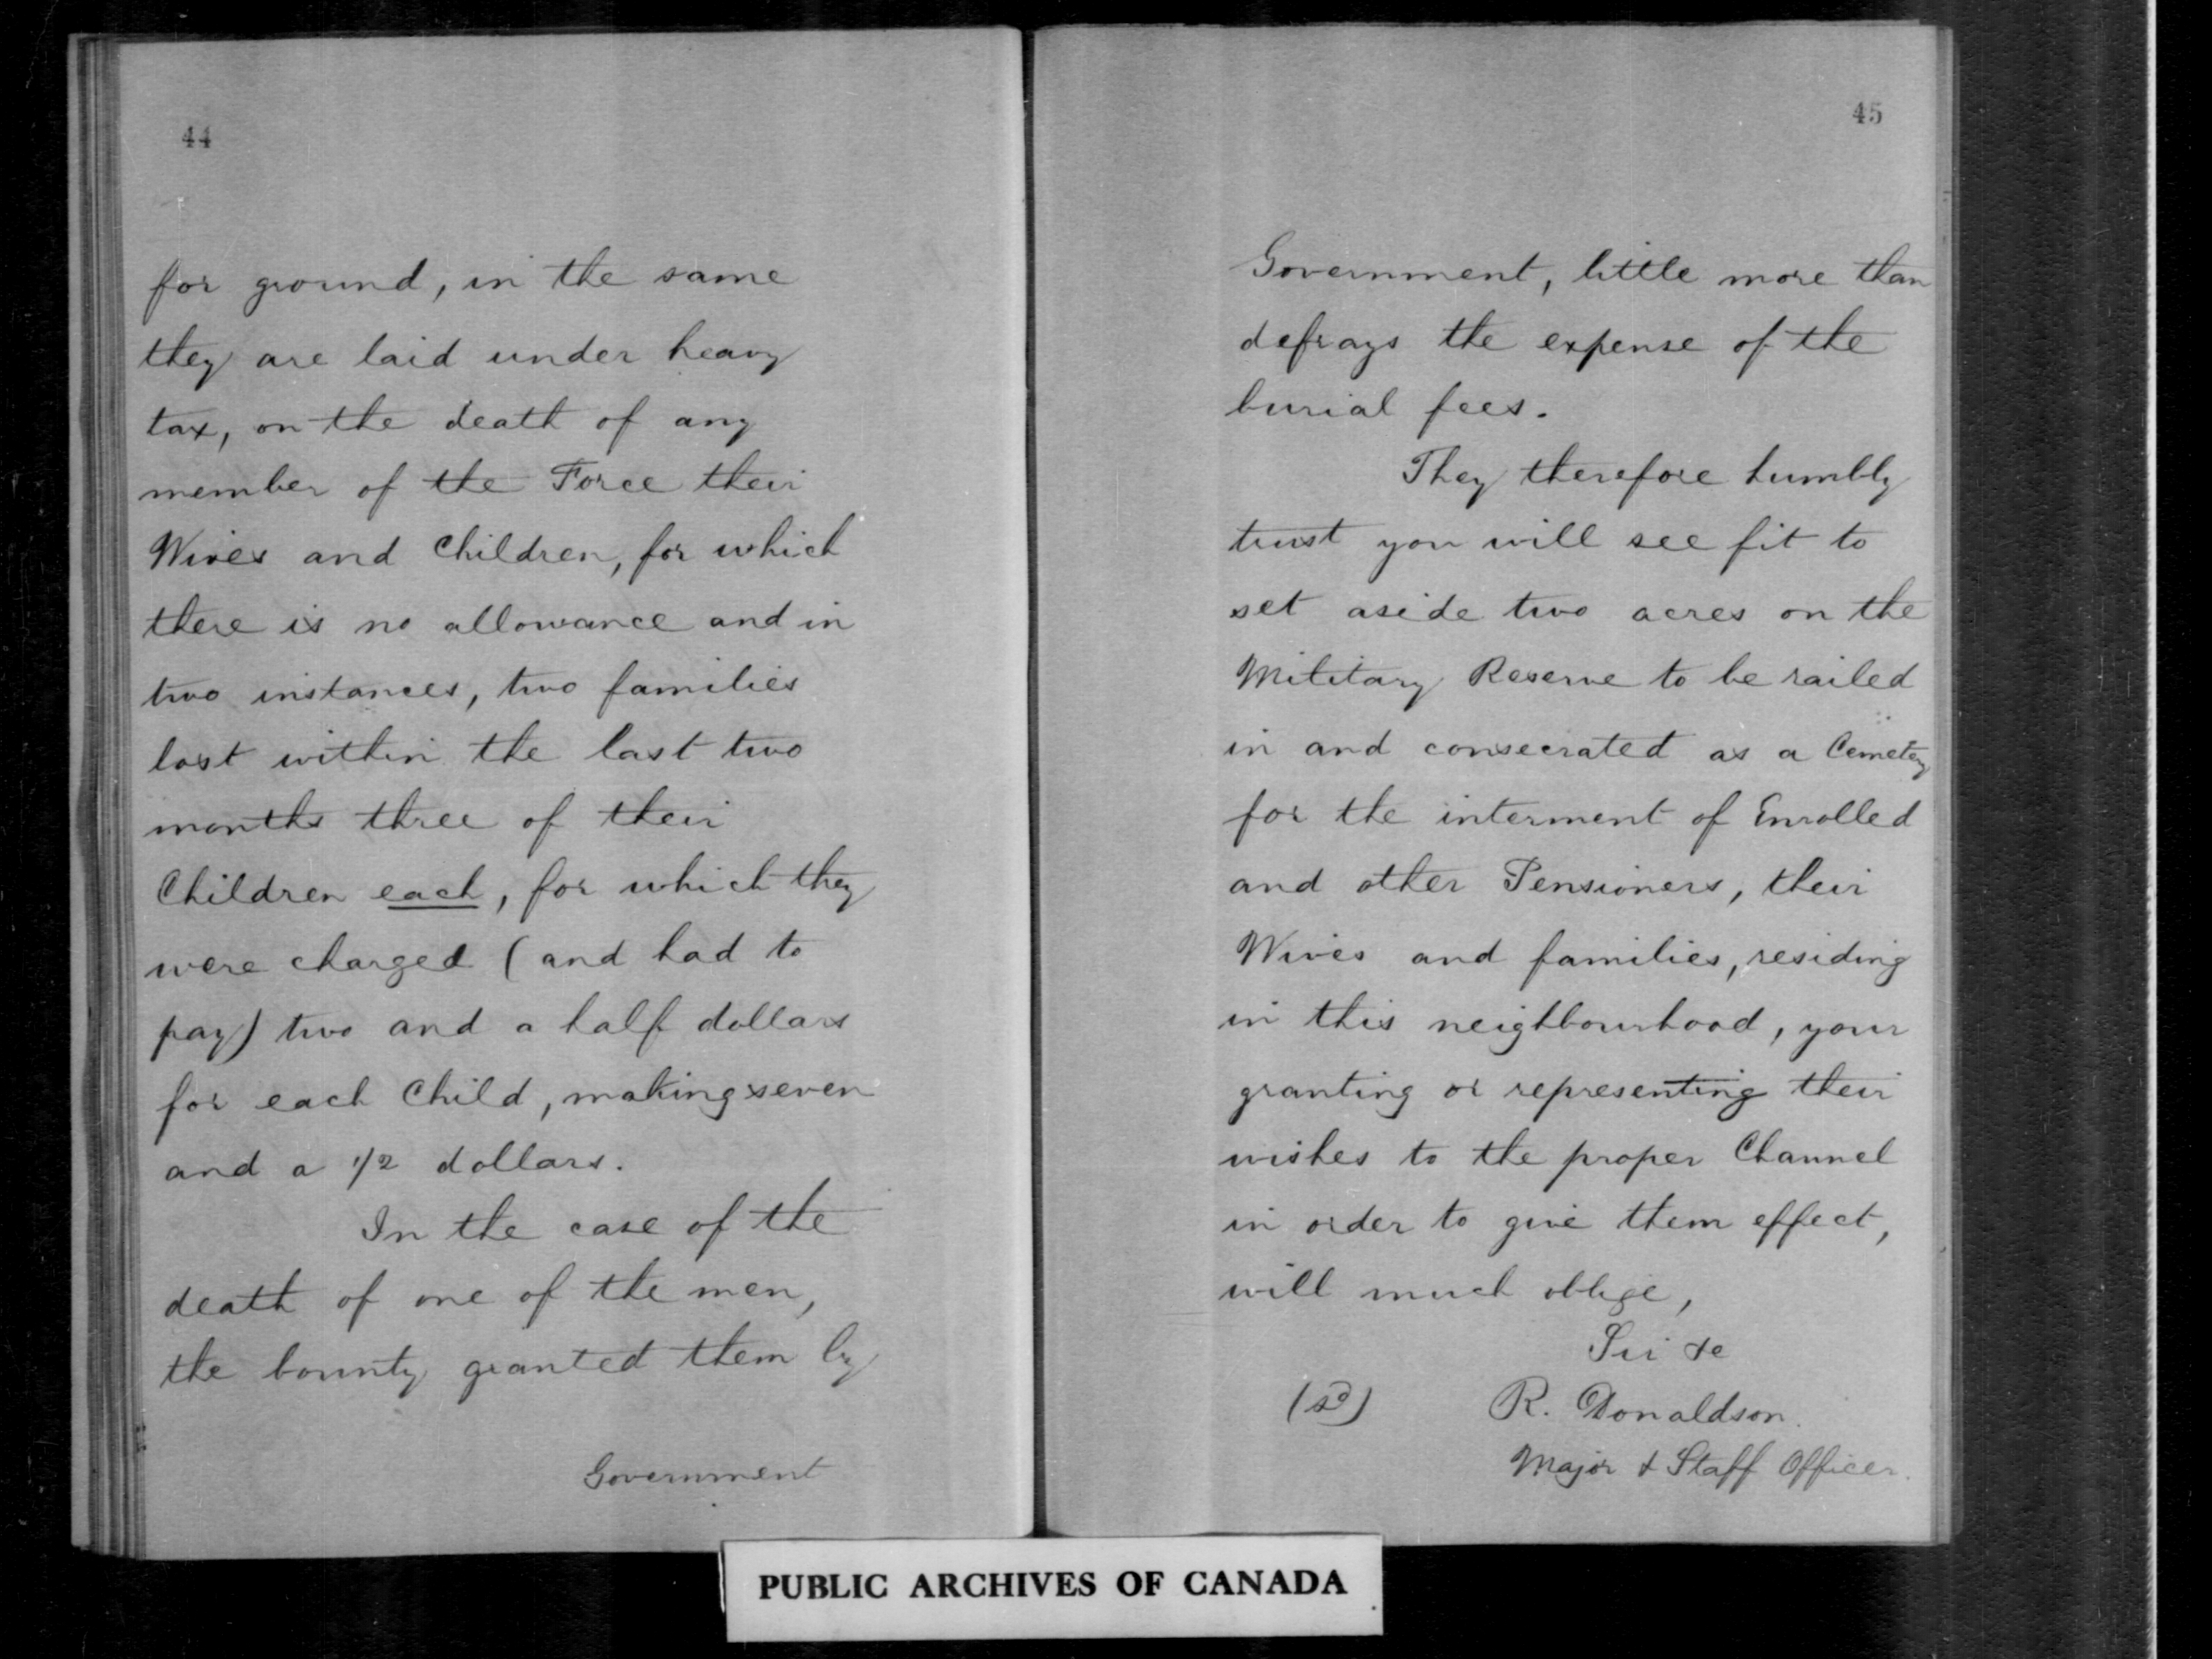 44
for ground, in the same
they are laid under heavy
tax, on the death of any
member of the Force their
Wives and Children, for which
there is no allowance and in
two instances, two families
lost within the last two
months three of their
Children each, for which they
were charged (and had to
pay) two and a half dollars
for each Child, making seven
and a 1/2 dollars.
In the case of the
death of one of the men,
the bounty granted them by
Government
45
Government, little more than
defrays the expense of the
burial fees.
They therefore humbly
trust you will see fit to
set aside two acres on the
Military Reserve to be railed
in and consecrated as a Cemetery
for the interment of Enrolled
and other Pensioners, their
Wives and families, residing
in this neighbourhood, your
granting or representing their
wishes to the proper Channel
in order to give them effect,
will much oblige,
Sir &c
(sd) R. Donaldson.
Major & Staff Officer.
PUBLIC ARCHIVES OF CANADA